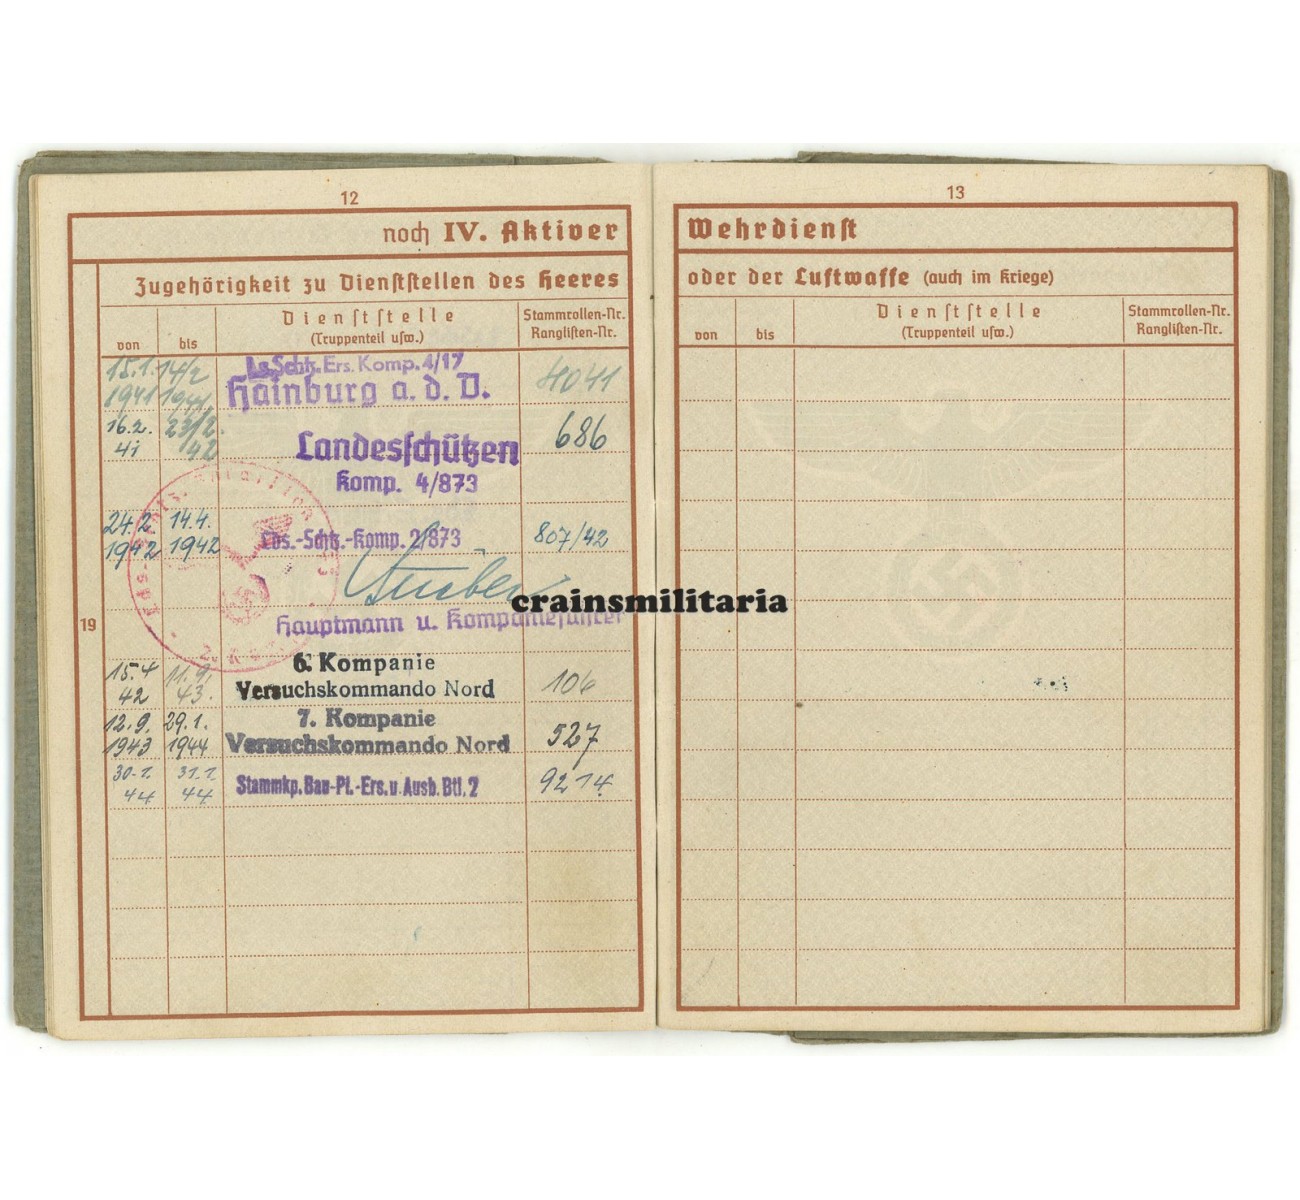 12
noch IV. Aktiver
Zugehörigkeit zu Dienststellen des Heeres
von
bis
Dienststelle
(Truppenteil usw.)
Stammrollen-Nr.
Ranglisten-Nr.
19
15.1. 14/2
1941 1941
Ls.Schtz.Ers.Komp.4/17
Hainburg a.d.D.
4041
16.2. 23/2.
41 42
Landesschützen
Komp. 4/873
686
24.2. 14.4.
1942 1942
Lds.-Schtz.-Komp. 2/873
807/42
Hauptmann u. Kompanieführer
15.4 11.9.
42 43.
6. Kompanie
Versuchskommando Nord
106
12.9. 29.1.
1943 1944
7. Kompanie
Versuchskommando Nord
527
30.1. 31.1.
44 44
Stammkp.Bau-Pi.-Ers.u.Ausb.Btl.2
9214
13
Wehrdienst
oder der Luftwaffe (auch im Kriege)
von
bis
Dienststelle
(Truppenteil usw.)
Stammrollen-Nr.
Ranglisten-Nr.
crainsmilitaria